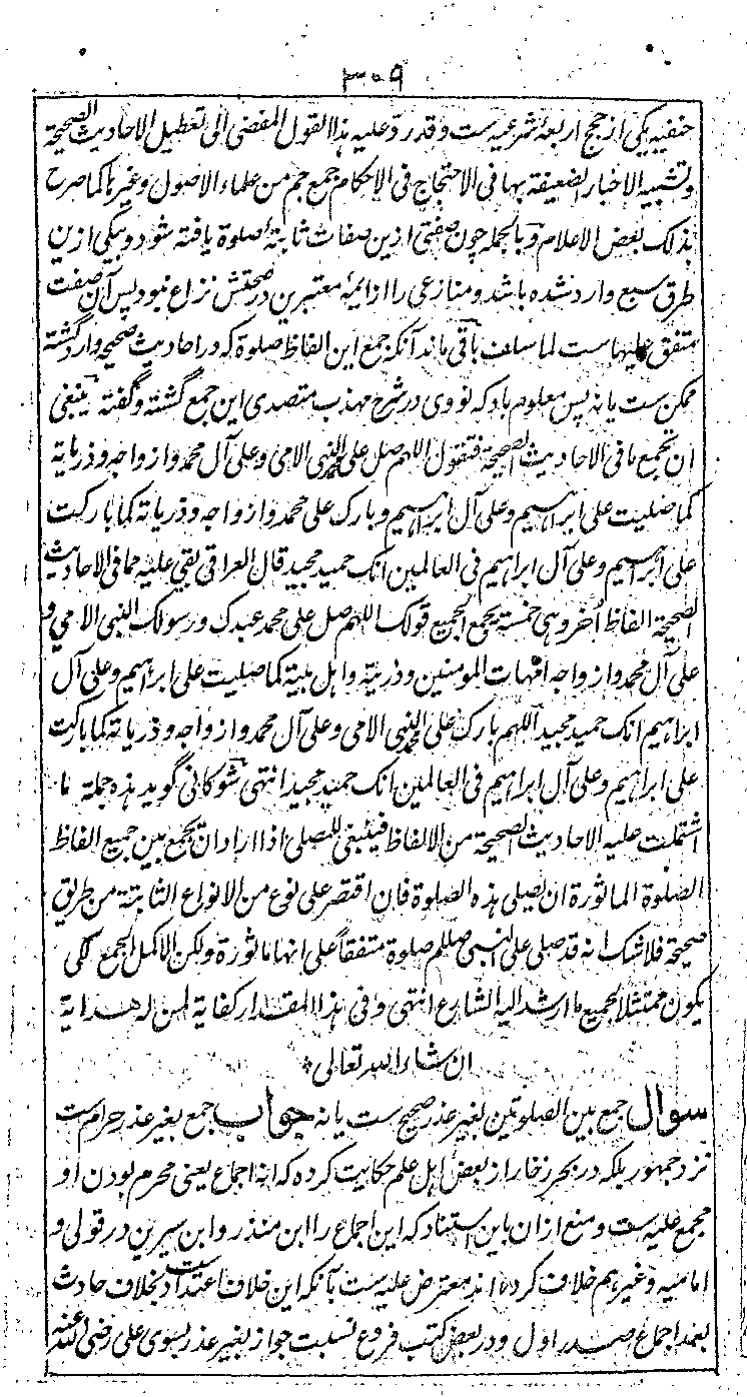 ۳۰۹
حنفیہ یکی از حجج اربعۂ شرعیہ ست وقد رد علیہ ہذا القول المفضی الی تعطیل الاحادیث الصحیحۃ
وتشبیہ الاخبار الضعیفۃ بہا فی الاحتجاج فی الاحکام جمع جم من علماء الاصول وغیرہا کما صرح
بذلک بعض الاعلام وبالجملہ چون صفتی ازین صفات ثابتہ صلوۃ یافتہ شود وبیکی ازین
طرق سبع وارد شدہ باشد ومنازعی را از ایمۂ معتبرین در صحتش نزاع نبود پس آن صفت
متفق علیہا ست لما سلف باقی ماند آنکہ جمع این الفاظ صلوۃ کہ در احادیث صحیحہ وارد گشتہ
ممکن ست یا نہ پس معلوم باد کہ نووی در شرح مہذب متصدی این جمع گشتہ وگفتہ ینبغی
ان یجمع ما فی الاحادیث الصحیحۃ فتقول اللہم صل علی محمد النبی الامی وعلی آل محمد وازواجہ وذریاتہ
کما صلیت علی ابراہیم وعلی آل ابراہیم وبارک علی محمد وازواجہ وذریاتہ کما بارکت
علی ابراہیم وعلی آل ابراہیم فی العالمین انک حمید مجید قال العراقی بقی علیہ مما فی الاحادیث
الصحیحۃ الفاظ اخر وہی خمسۃ یجمع الجمیع قولک اللہم صل علی محمد عبدک ورسولک النبی الامی و
علی آل محمد وازواجہ امہات المومنین وذریتہ واہل بیتہ کما صلیت علی ابراہیم وعلی آل
ابراہیم انک حمید مجید اللہم بارک علی محمد النبی الامی وعلی آل محمد وازواجہ وذریاتہ کما بارکت
علی ابراہیم وعلی آل ابراہیم فی العالمین انک حمید مجید انتہی شوکانی گوید ہذہ جملۃ ما
اشتملت علیہ الاحادیث الصحیحۃ من الالفاظ فینبغی للمصلی اذا اراد ان یجمع بین جمیع الفاظ
الصلوۃ الماثورۃ ان یصلی ہذہ الصلوۃ فان اقتصر علی نوع من الانواع الثابتۃ من طریق
صحیحۃ فلاشک انہ قد صلی علی النبی صللم صلوۃ متفقا علی انہا ماثورۃ ولکن الاکمل الجمع لکی
یکون ممتثلا لجمیع ما ارشد الیہ الشارع انتہی وفی ہذا المقدار کفایۃ لمن لہ ہدایۃ
ان شاء اللہ تعالی
سوال جمع بین الصلوتین بغیر عذر صحیح ست یا نہ جواب جمع بغیر عذر حرام ست
نزد جمہور بلکہ در بحر زخار از بعض اہل علم حکایت کردہ کہ انہ اجماع یعنی محرم بودن او
مجمع علیہ ست ومنع ازان باین استناد کہ این اجماع را ابن منذر وابن سیرین در قولی و
امامیہ وغیرہم خلاف کردہ اند معترض علیہ ست بآنکہ این خلاف اعتداد نیست بخلاف حادث
بعد اجماع صدر اول ودر بعض کتب فروع نسبت جواز بغیر عذر بسوی علی رضی اللہ عنہ